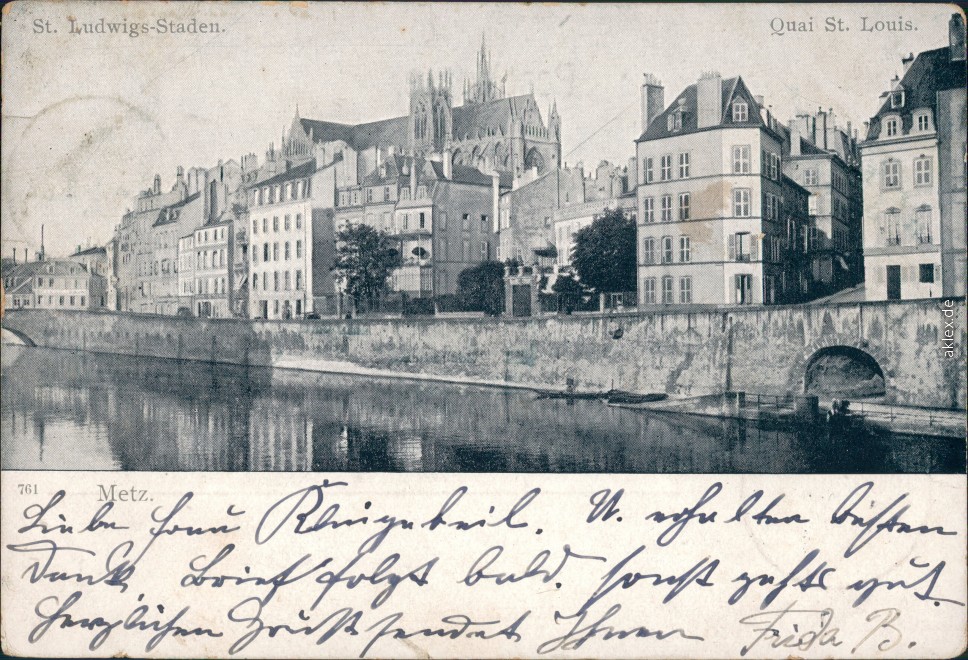 St. Ludwigs-Staden.
Quai St. Louis.
aklex.de
761
Metz.
Liebe Frau Klingebeil. U. erhalten besten
Dank, Brief folgt bald. sonst gehts gut.
Herzlichen Gruß sendet Ihnen Frida B.